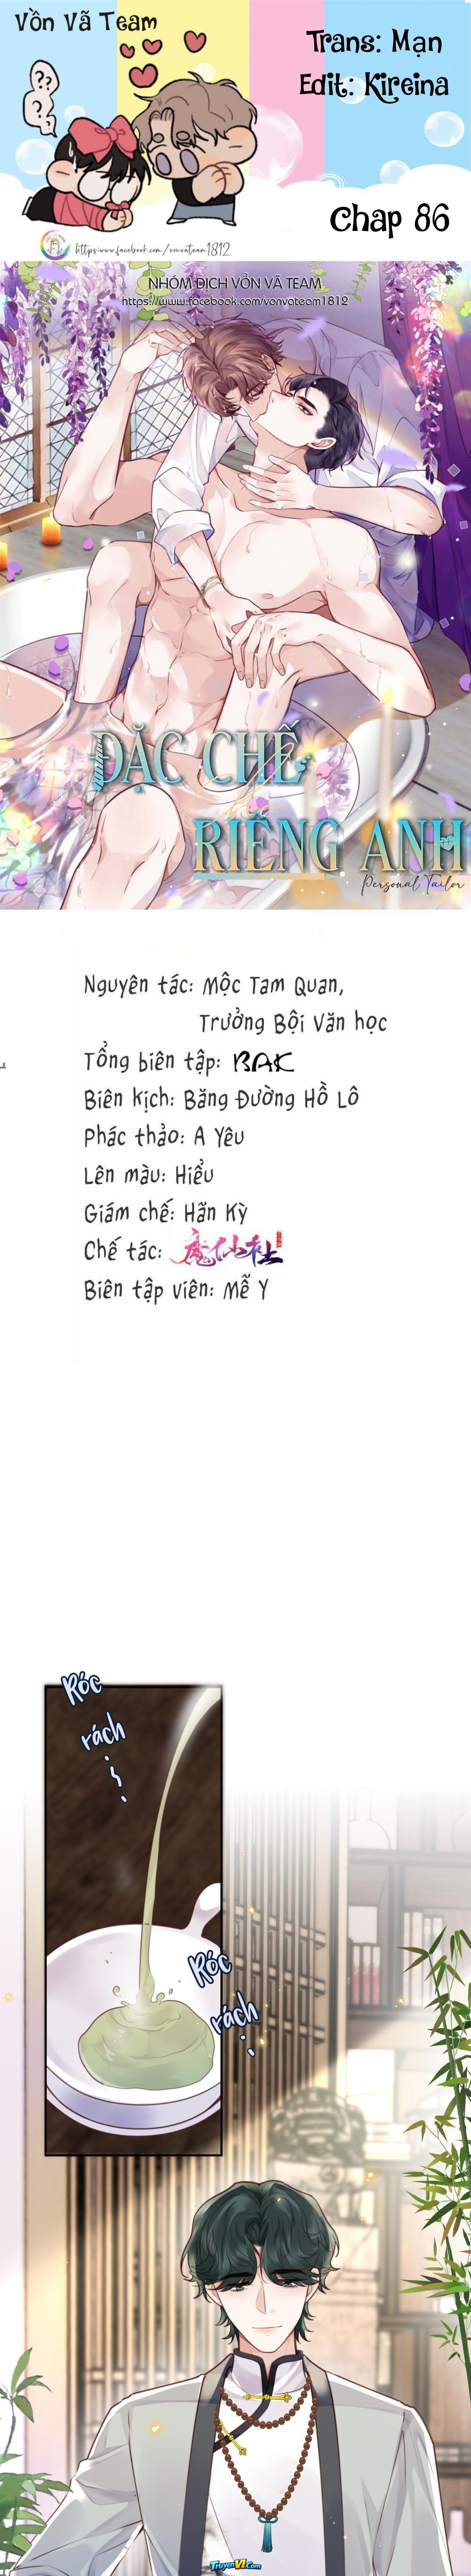 Vồn Vã Team
Trans: Mạn
Edit: Kireina
??
?
Chap 86
https://www.facebook.com/vonvateam1812
NHÓM DỊCH VỒN VÃ TEAM
https://www.facebook.com/vonvateam1812
ĐẶC CHẾ
cho
RIÊNG ANH
Personal Tailor
Nguyên tác: Mộc Tam Quan,
Trưởng Bội Văn học
Tổng biên tập: BAK
Biên kịch: Băng Đường Hồ Lô
Phác thảo: A Yêu
Lên màu: Hiểu
Giám chế: Hãn Kỳ
Chế tác: 魔仙社
Biên tập viên: Mễ Y
Róc
rách
Róc
rách
TruyenVI.Com